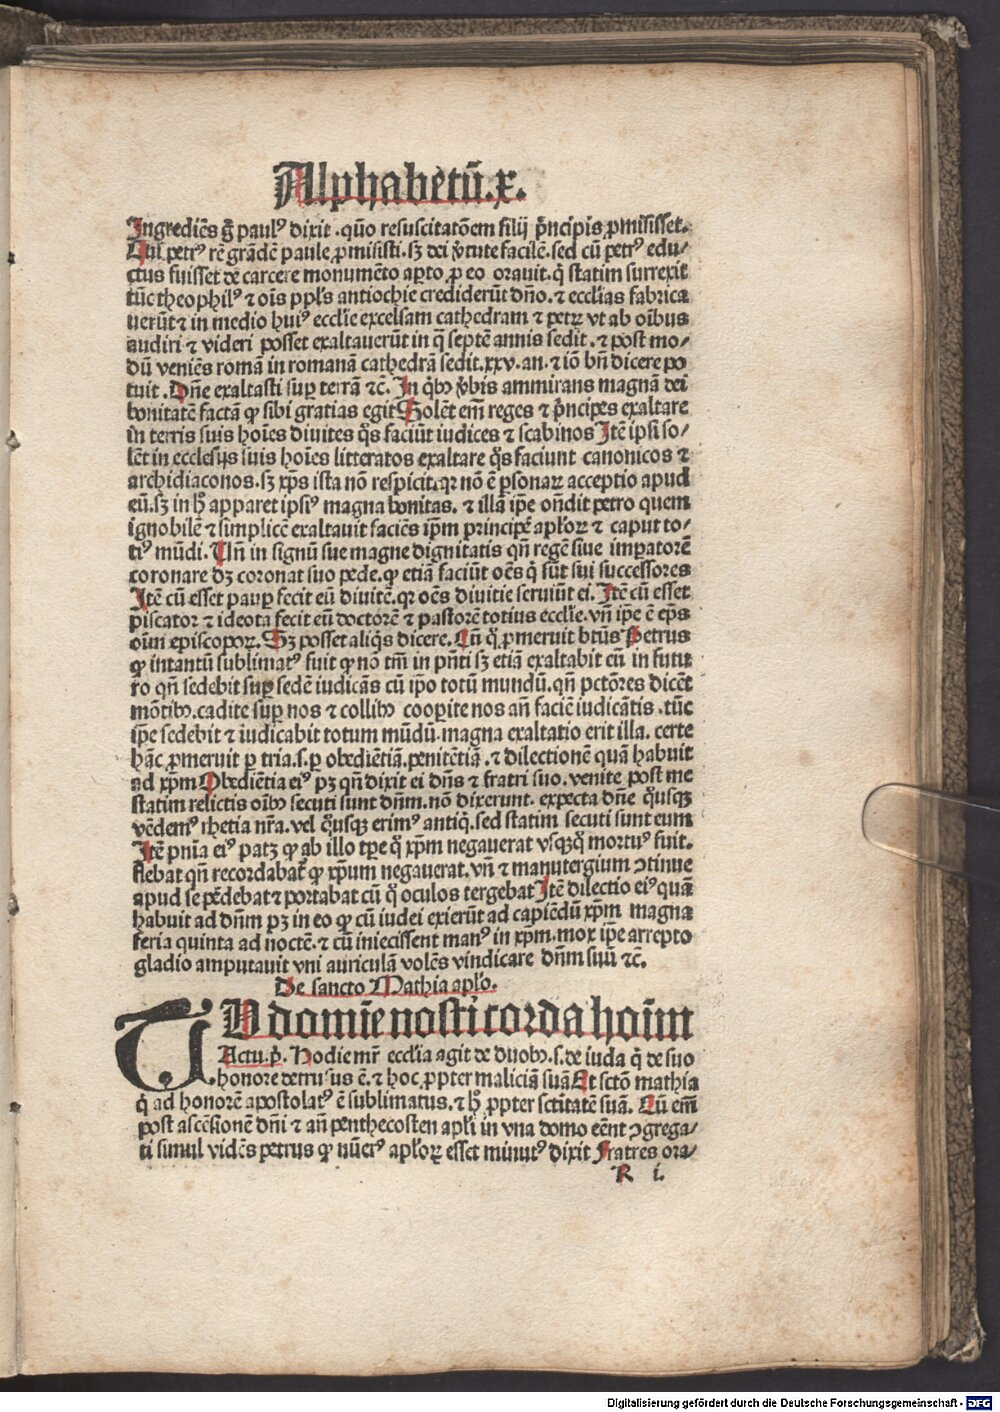 Alphabetū.x.
Ingrediēs g̃ paulꝰ dixit .quō resuscitatōem filij p̄ncipis ꝓmisisset.
Cui petrꝰ rē grādē paule ꝓmisisti.sꝫ dei v̄tute facilē.sed cū petrꝰ edu/
ctus fuisset de carcere monumēto aꝑto ꝓ eo orauit.q̇ statim surrexit
tūc theophilꝰ ⁊ oīs ppl's antiochie crediderūt dn̄o.⁊ eccl'ias fabrica
uerūt ⁊ in medio huiꝰ eccl'ie excelsam cathedram ⁊ petrꝝ vt ab oībus
audiri ⁊ videri posset exaltauerūt in q̄ septē annis sedit.⁊ post mo/
dū veniēs romā in romanā cathedrā sedit.xxv.an.⁊ iō bn̄ dicere po
tuit .Dn̄e exaltasti suꝑ terrā ⁊c̄. In q̇bꝫ v̄bis ammirans magnā dei
bonitatē factā ꝙ sibi gratias egit Solēt em̄ reges ⁊ p̄ncipes exaltare
in terris suis hoīes diuites q̊s faciūt iudices ⁊ scabinos Itē ipsi so/
lēt in ecclesijs suis hoīes litteratos exaltare q̊s faciunt canonicos ⁊
archidiaconos.sꝫ xp̄s ista nō respicit.qꝛ nō ē ꝑsonaꝝ acceptio apud
eū.sꝫ in hͦ apparet ipsiꝰ magna bonitas. ⁊ illā ip̄e on̄dit petro quem
ignobilē ⁊ simplicē exaltauit faciēs ip̄m principē apl'oꝝ ⁊ caput to/
tiꝰ mūdi. Vn̄ in signū sue magne dignitatis qn̄ regē siue imꝑatorē
coronare dꝫ coronat suo pede.ꝙ etiā faciūt oēs q̇ sūt sui successores
Itē cū esset pauꝑ fecit eū diuitē.qꝛ oēs diuitie seruiūt ei. Itē cū esset
piscator ⁊ ideota fecit eū doctorē ⁊ pastorē totius eccl'ie.vn̄ ip̄e ē ep̄s
oīm episcopoꝝ. Sꝫ posset aliq̇s dicere. Cū q̊ ꝓmeruit btūs Petrus
ꝙ intantū sublimatꝰ fuit ꝙ nō tm̄ in pn̄ti sꝫ etiā exaltabit eū in futu
ro qn̄ sedebit suꝑ sedē iudicās cū ip̄o totū mundū.qn̄ pctōres dicēt
mōtibꝫ.cadite suꝑ nos ⁊ collibꝫ cooꝑite nos an̄ faciē iudicātis .tūc
ip̄e sedebit ⁊ iudicabit totum mūdū.magna exaltatio erit illa. certe
hāc ꝓmeruit ꝑ tria.s.ꝑ obediētiā.penitētiā .⁊ dilectionē quā habuit
ad xp̄m Obediētia eiꝰ pꝫ qn̄ dixit ei dn̄s ⁊ fratri suo.venite post me
statim relictis oībꝫ secuti sunt dn̄m.nō dixerunt. expecta dn̄e q̊usqꝫ
vēdemꝰ rhetia nr̄a.vel q̊usqꝫ erimꝰ antiq̇.sed statim secuti sunt eum
Itē pn̄ia eiꝰ patꝫ ꝙ ab illo tꝑe q̊ xp̄m negauerat vsqꝫq̊ mortuꝰ fuit.
flebat qn̄ recordabat᷑ ꝙ xp̄um negauerat. vn̄ ⁊ manutergium ꝯtinue
apud se pēdebat ⁊ portabat cū q̊ oculos tergebat Itē dilectio eiꝰ quā
habuit ad dn̄m pꝫ in eo ꝙ cū iudei exierūt ad capiēdū xp̄m magna
feria quinta ad noctē.⁊ cū iniecissent manꝰ in xp̄m.mox ip̄e arrepto
gladio amputauit vni auriculā volēs vindicare dn̄m suū ⁊c̄.
De sancto Mathia apl'o.
TV domīe nosti corda hoīm
Actu.p̄. Hodie mr̄ eccl'ia agit de duobꝫ.s.de iuda q̇ de suo
honore detrusus ē.⁊ hoc ꝓpter maliciā suā Et sctō mathia
q̇ ad honorē apostolatꝰ ē sublimatus.⁊ hͦ ꝓpter sctītatē suā. Cū em̄
post ascēsionē dn̄i ⁊ an̄ penthecosten apl'i in vna domo eēnt ꝯgrega/
ti simul vidēs petrus ꝙ nūerꝰ apl'oꝝ esset minutꝰ dixit Fratres ora/
R i.
Digitalisierung gefördert durch die Deutsche Forschungsgemeinschaft - DFG